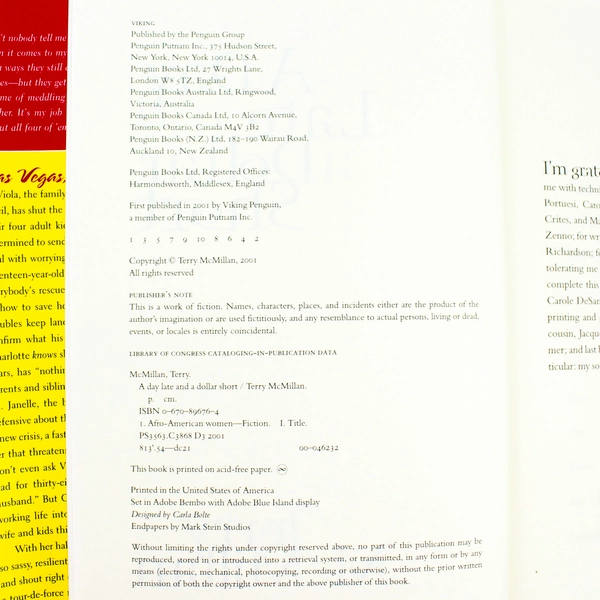 't nobody tell me
n it comes to my
ways they still
es—but they get
me of meddling
her. It's my job
ut all four of 'em
as Vegas,
Viola, the family
il, has shut the
ir four adult
ermined to send
al with worrying
enteen-year-old
rybody's rescue
how to save
ubles keep
nfirm what his
harlotte knows
ars, has "nothin
rents and siblin
. Janelle, the
efensive about
new crisis, a fast
er that threaten
on't even ask
ad for thirty-
usband." But
working life into
wife and kids
With her
so sassy, resilient
and shout right
a tour-de-force
VIKING
Published by the Penguin Group
Penguin Putnam Inc., 375 Hudson Street,
New York, New York 10014, U.S.A.
Penguin Books Ltd, 27 Wrights Lane,
London W8 5TZ, England
Penguin Books Australia Ltd, Ringwood,
Victoria, Australia
Penguin Books Canada Ltd, 10 Alcorn Avenue,
Toronto, Ontario, Canada M4V 3B2
Penguin Books (N.Z.) Ltd, 182–190 Wairau Road,
Auckland 10, New Zealand
Penguin Books Ltd, Registered Offices:
Harmondsworth, Middlesex, England
First published in 2001 by Viking Penguin,
a member of Penguin Putnam Inc.
1 3 5 7 9 10 8 6 4 2
Copyright © Terry McMillan, 2001
All rights reserved
PUBLISHER'S NOTE
This is a work of fiction. Names, characters, places, and incidents either are the product of the
author's imagination or are used fictitiously, and any resemblance to actual persons, living or dead,
events, or locales is entirely coincidental.
LIBRARY OF CONGRESS CATALOGING-IN-PUBLICATION DATA
McMillan, Terry.
A day late and a dollar short / Terry McMillan.
p. cm.
ISBN 0-670-89676-4
1. Afro-American women—Fiction. I. Title.
PS3563.C3868 D3 2001
813'.54—dc21 00-046232
This book is printed on acid-free paper.
Printed in the United States of America
Set in Adobe Bembo with Adobe Blue Island display
Designed by Carla Bolte
Endpapers by Mark Stein Studios
Without limiting the rights under copyright reserved above, no part of this publication may be
reproduced, stored in or introduced into a retrieval system, or transmitted, in any form or by any
means (electronic, mechanical, photocopying, recording or otherwise), without the prior written
permission of both the copyright owner and the above publisher of this book.
I'm grate
me with techn
Portuesi, Caro
Crites, and Ma
Zenno; for wr
Richardson; fo
tolerating me
complete this
Carole DeSan
printing and
cousin, Jacqu
mer; and last
ticular: my so